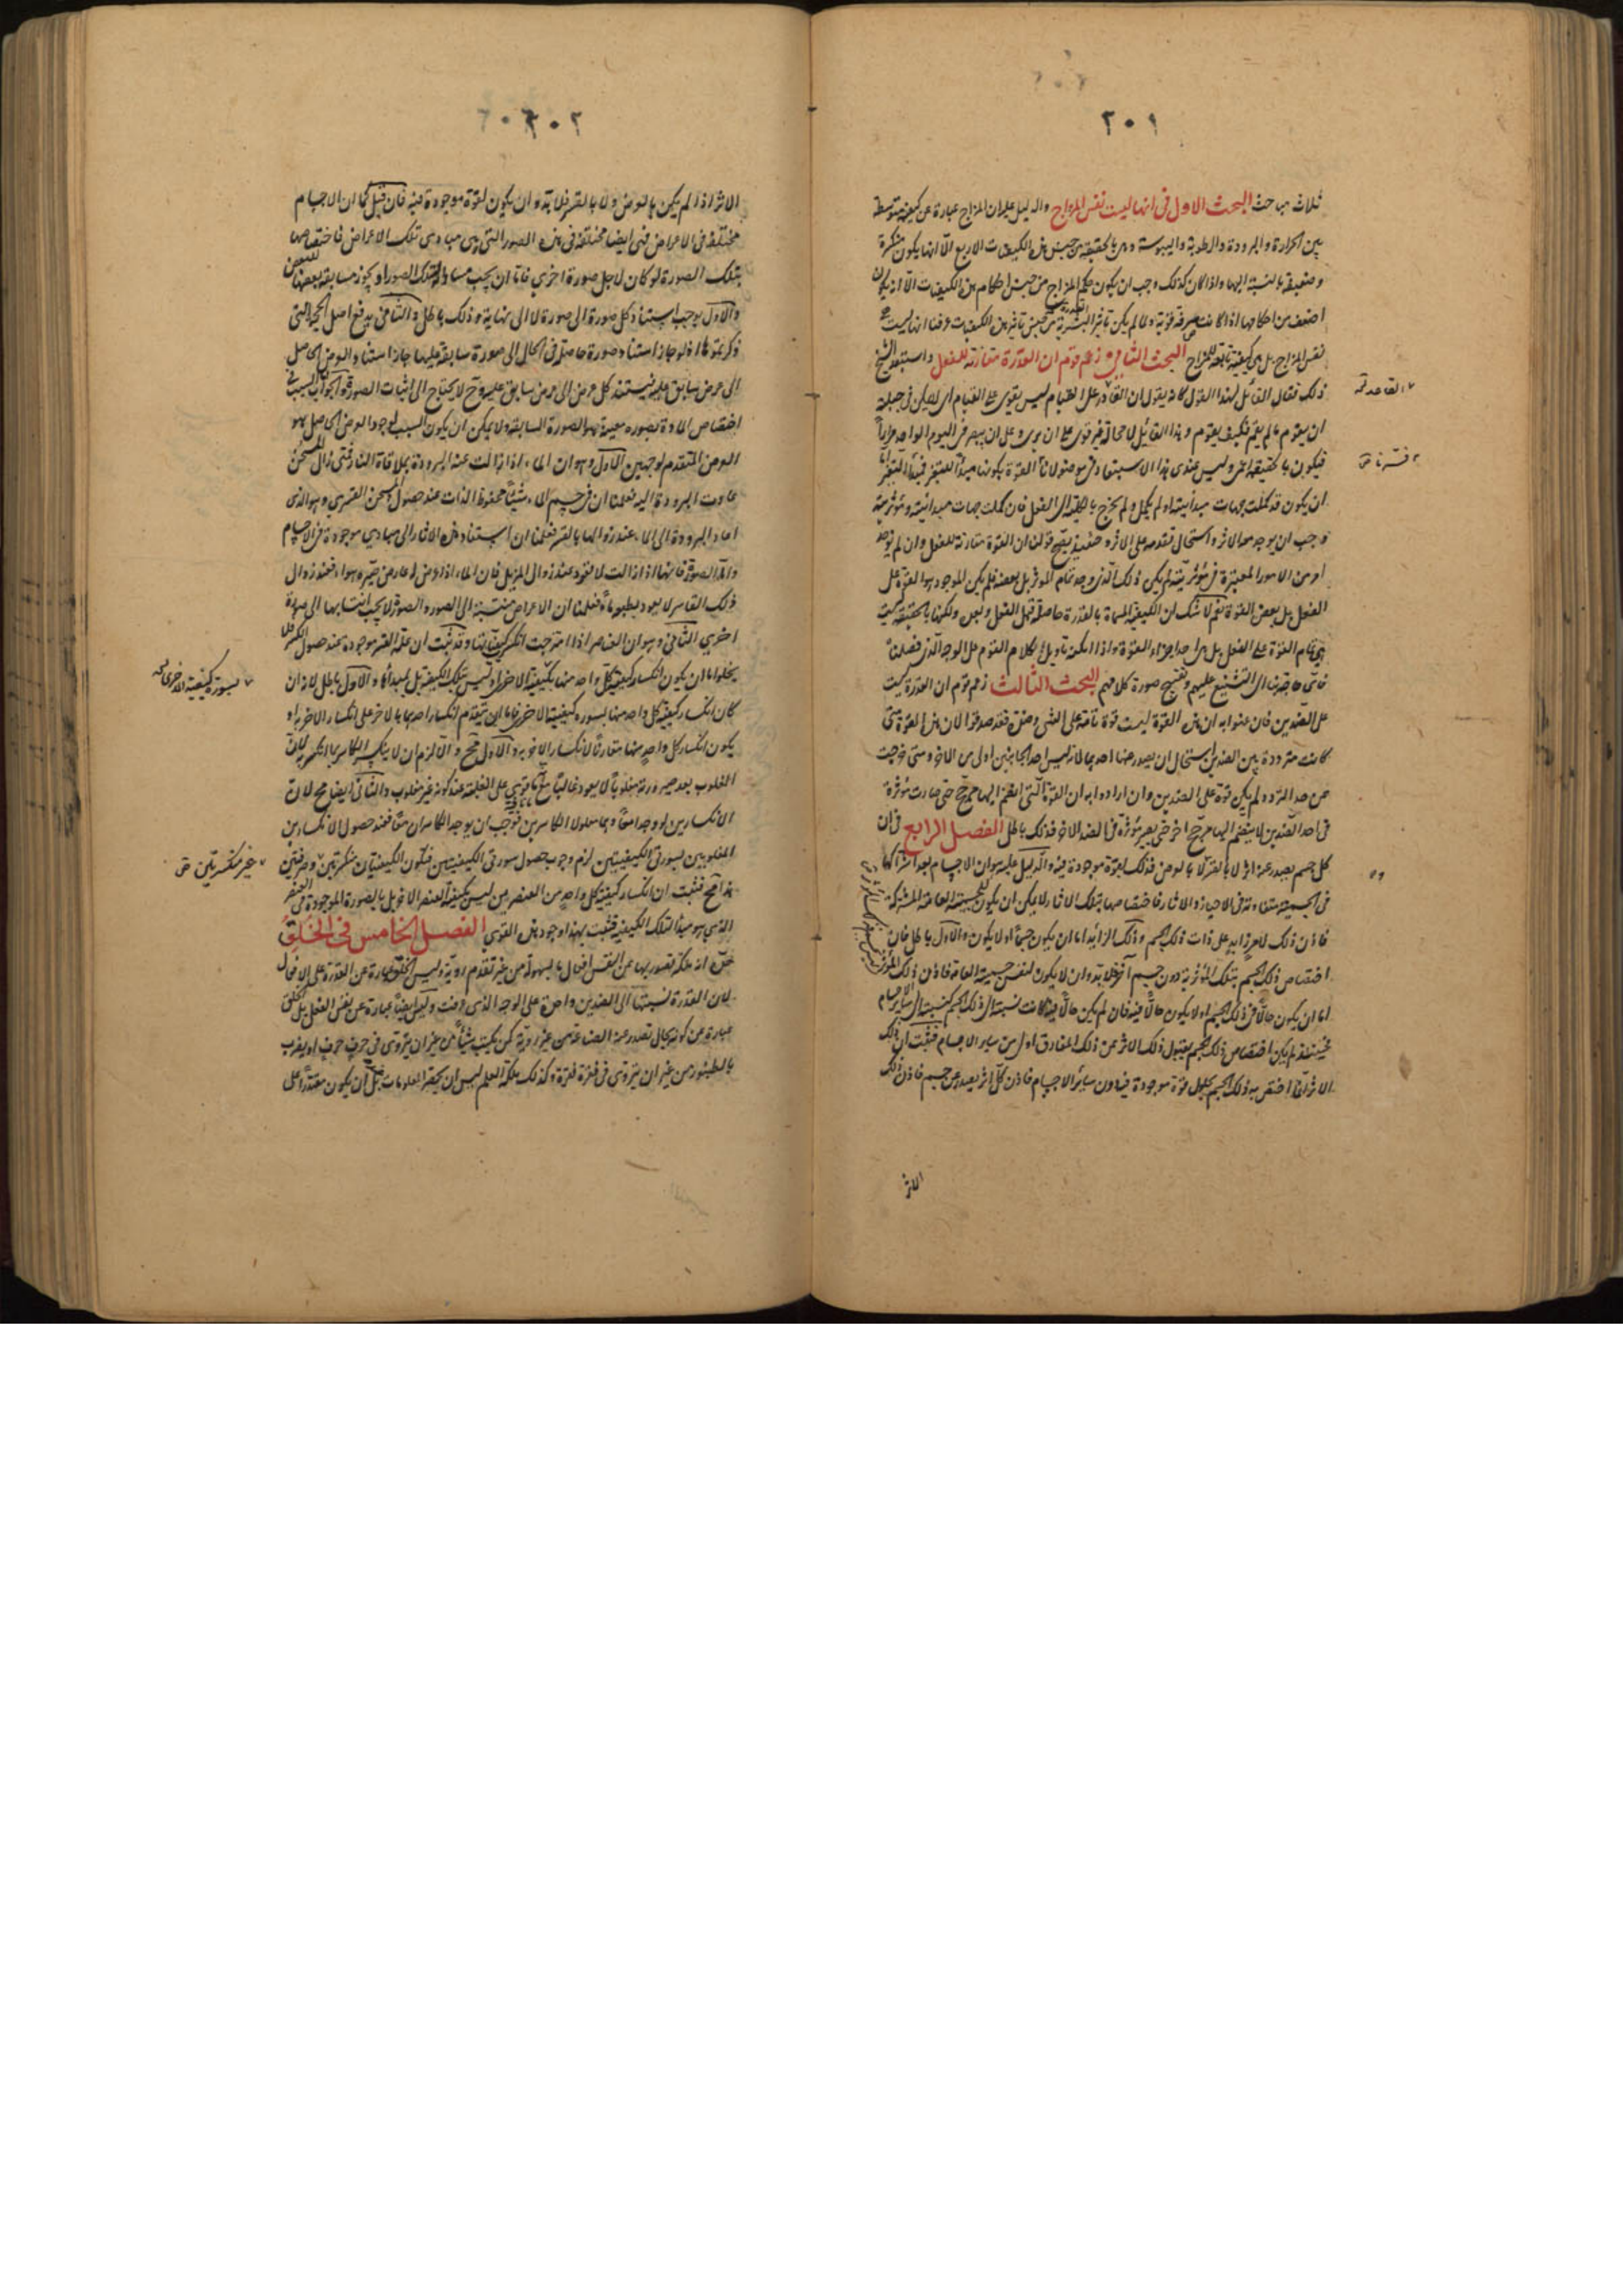 ٢٠١
ثلاث مباحث البحث الاول في انها ليست نفس المزاج والدليل عليه ان المزاج عبارة عن كيفية متوسطة
بين الحرارة والبرودة والرطوبة واليبوسة وهي بالحقيقة من جنس هذه الكيفيات الاربع الا انها يكون منكسرة
وضعيفة بالنسبة اليها واذا كان كذلك وجب ان يكون حكم المزاج من جنس احكام هذه الكيفيات الا انه يكون
اضعف من احكامها اذا كانت صرفة قوية ولما لم يكن تاثير من جنس تاثير هذه الكيفيات عرفنا انها ليست
نفس المزاج بل هي كيفية تابعة للمزاج البحث الثاني زعم قوم ان القدرة مقارنة للفعل واستبعد الشيخ
ذلك فقال القائل لهذا القول كانه يقول ان القادر على القيام ليس يقوى على القيام اي لا يمكن في جبلته
ان يقوم ما لم يقم فكيف يقوم وهذا القائل لا محالة غير قوى على ان يرى وعلى ان يبصر في اليوم الواحد مرارا
فيكون بالحقيقة اعمى وليس عندي هذا الاستبعاد في موضعه لان القوة يكون مبدأ للتغير
ان يكون قد كملت جهات مبدائيته او لم يكمل ولم يخرج بالكلية الى الفعل فان كملت جهات مبدائيته ومؤثريته
وجب ان يوجد معه الاثر واستحال تقدمه على الاثر وحينئذ يصح قولنا ان القوة مقارنة للفعل وان لم يوجد
امر من الامور المعتبرة في مؤثريته لم يكن ذلك الذي وجد تمام المؤثر بل بعضه فلم يكن الموجود هو القوة على
الفعل بل بعض القوة نعم لا شك ان الكيفية المسماة بالقدرة حاصلة قبل الفعل وبعده ولكنها بالحقيقة ليست
هي تمام القوة على الفعل بل هي احد اجزاء القوة واذا امكنه تاويل كلام القوم على الوجه الذي فصلناه
فاي حاجة بنا الى التشنيع عليهم وتقبيح صورة كلامهم البحث الثالث زعم قوم ان القدرة ليست
على الضدين فان عنوا به ان هذه القوة ليست قوة تامة على الشئ وضده فقد صدقوا لان هذه القوة متى
كانت مترددة بين الضدين استحال ان يصدر عنها احدهما لانه ليس احد الجانبين اولى من الاخر ومتى خرجت
عن حد التردد لم يكن قوة على الضدين وان ارادوا به ان القوة التي انضم اليها مرجح حتى صارت مؤثرة
في احد الضدين لا ينضم اليها مرجح اخر حتى يصير مؤثرة في الضد الاخر فذلك باطل الفصل الرابع في ان
كل جسم يصدر عنه اثر لا بالقسر لا بالعرض فذلك لقوة موجودة فيه والدليل عليه هو ان الاجسام بعد اشتراكها
في الجسمية متفاوتة في الاحياز والاثار فاختصاصها بتلك الاثار لا يمكن ان يكون للجسمية العامة المشتركة
فاذن ذلك لامر زايد على ذات ذلك الجسم وذلك الزائد اما ان يكون جسما او لا يكون والاول باطل فان
اختصاص ذلك الجسم بتلك المؤثرية دون جسم آخر فلا بد وان لا يكون لنفس جسميته العامة فاذن ذلك المؤثر
اما ان يكون حالا في ذلك الجسم او لا يكون حالا فيه فان لم يكن حالا فيه كانت نسبته الى ذلك الجسم كنسبته الى سائر الاجسام
فحينئذ لم يكن اختصاص ذلك الجسم بقبول ذلك الاثر عن ذلك المفارق اولى من ساير الاجسام فثبت ان ذلك
الاثر انما اختص به ذلك الجسم لحلول قوة موجودة فيه دون سائر الاجسام فاذن كل اثر يصدر عن جسم فاذن ذلك
الاثر
٢٠٢
الاثر اذا لم يكن بالعرض ولا بالقسر فلا بد وان يكون لقوة موجودة فيه فان قيل كما ان الاجسام
مختلفة في الاعراض فهي ايضا مختلفة في هذه الصور التي هي مبادى تلك الاعراض فاختصاصها
بتلك الصورة لو كان لاجل صورة اخرى فاما ان يجب مساوقة تلك الصور او يجوز مسابقة بعضها للبعض
والاول يوجب استناد كل صورة الى صورة لا الى نهاية وذلك باطل والثاني يدفع اصل الحجة التي
ذكرتموها اذ لو جاز استناد صورة حاصلة في الحال الى صورة سابقة عليها جاز استناد العرض الحاصل
الى عرض سابق عليه فيستند كل عرض الى عرض سابق عليه وح لا يحتاج الى اثبات الصور فالجواب السبب في
اختصاص المادة بصورة معينة هو الصورة السابقة ولا يمكن ان يكون السبب لوجود العرض الحاصل هو
العرض المتقدم لوجهين الاول هو ان الماء اذا زالت عنه البرودة بملاقاة النار فمتى زال المسخن
عادت البرودة اليه فعلمنا ان في جسم الماء شيئا محفوظ الذات عند حصول المسخن القسري وهو الذي
اعاد البرودة الى الماء عند زوالها بالقسر فعلمنا ان استناد هذه الاثار الى مبادي موجودة في الاجسام
واما الصورة فانها اذا زالت لا تعود عند زوال المزيل فان الماء اذا عرض له عارض صيره هواء فعند زوال
ذلك القاسر لا يعود بطبعه ماء فعلمنا ان الاعراض منتسبة الى الصور والصور لا يجب انتسابها الى صورة
اخرى الثاني وهو ان العناصر اذا امتزجت انكسرت كيفياتها وقد ثبت ان علة القسر موجودة عند حصول الكسر فلا
يخلوا اما ان يكون انكسار كيفية كل واحد منها بكيفية الاخر او ليس بتلك الكيفية بل لمبدأها والاول باطل لانه ان
كان انكسار كيفية كل واحد منهما بسورة كيفية الاخر فاما ان يتقدم انكسار احدهما بالاخر على انكسار الاخر به او
يكون انكسار كل واحد منهما مقارنا لانكسار الاخر به والاول مح والا لزم ان لا ينكسر الكاسر بما انكسر به لان
المغلوب بعد صيرورته مغلوبا لا يعود غالبا مع ما قوى على الغلبة عند كونه غير مغلوب والثاني ايضا مح لان
الانكسارين لو وجدا معا وهما معلولا الكاسرين فوجب ان يوجد الكاسران معا فعند حصول الانكسارين
المعلولين لسورتي الكيفيتين لزم وجوب حصول سورتي الكيفيتين فيكون الكيفيتان منكسرتين وصرفتين
هذا مح فثبت ان انكسار كيفية كل واحد من العنصرين ليس بكيفية العنصر الاخر بل بالصورة الموجودة في العنصر
الذي هو مبدأ لتلك الكيفية فثبت بهذا وجود هذه القوى الفصل الخامس في الخلق
حده انه ملكة تصدر بها عن النفس افعال بالسهولة من غير تقدم روية وليس الخلق عبارة عن القدرة على الافعال
لان القدرة نسبتها الى الضدين واحدة على الوجه الذي عرفت وليس ايضا عبارة عن نفس الفعل بل الخلق
عبارة عن كونه بحال تصدر عنه الصناعة من غير روية كمن يكتب شيئا من غير ان يتروى في حرف حرف او يضرب
بالطنبور من غير ان يتروى في نقرة نقرة وكذلك ملكة العلم ليس ان يحضر المعلومات بل ان يكون مقتدرا على
لسورة كيفية الاخرى
غير منكسرتين